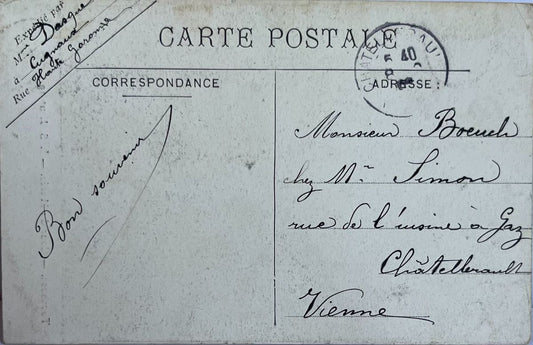 Expédié par
M Dasque
à Cugnaux
Rue Haute Garonne
CARTE POSTALE
CORRESPONDANCE
ADRESSE
Bon souvenir
Monsieur Boeuch
chez Mr Simon
rue de l'usine à Gaz
Châtellerault
Vienne
CHATELLERAULT